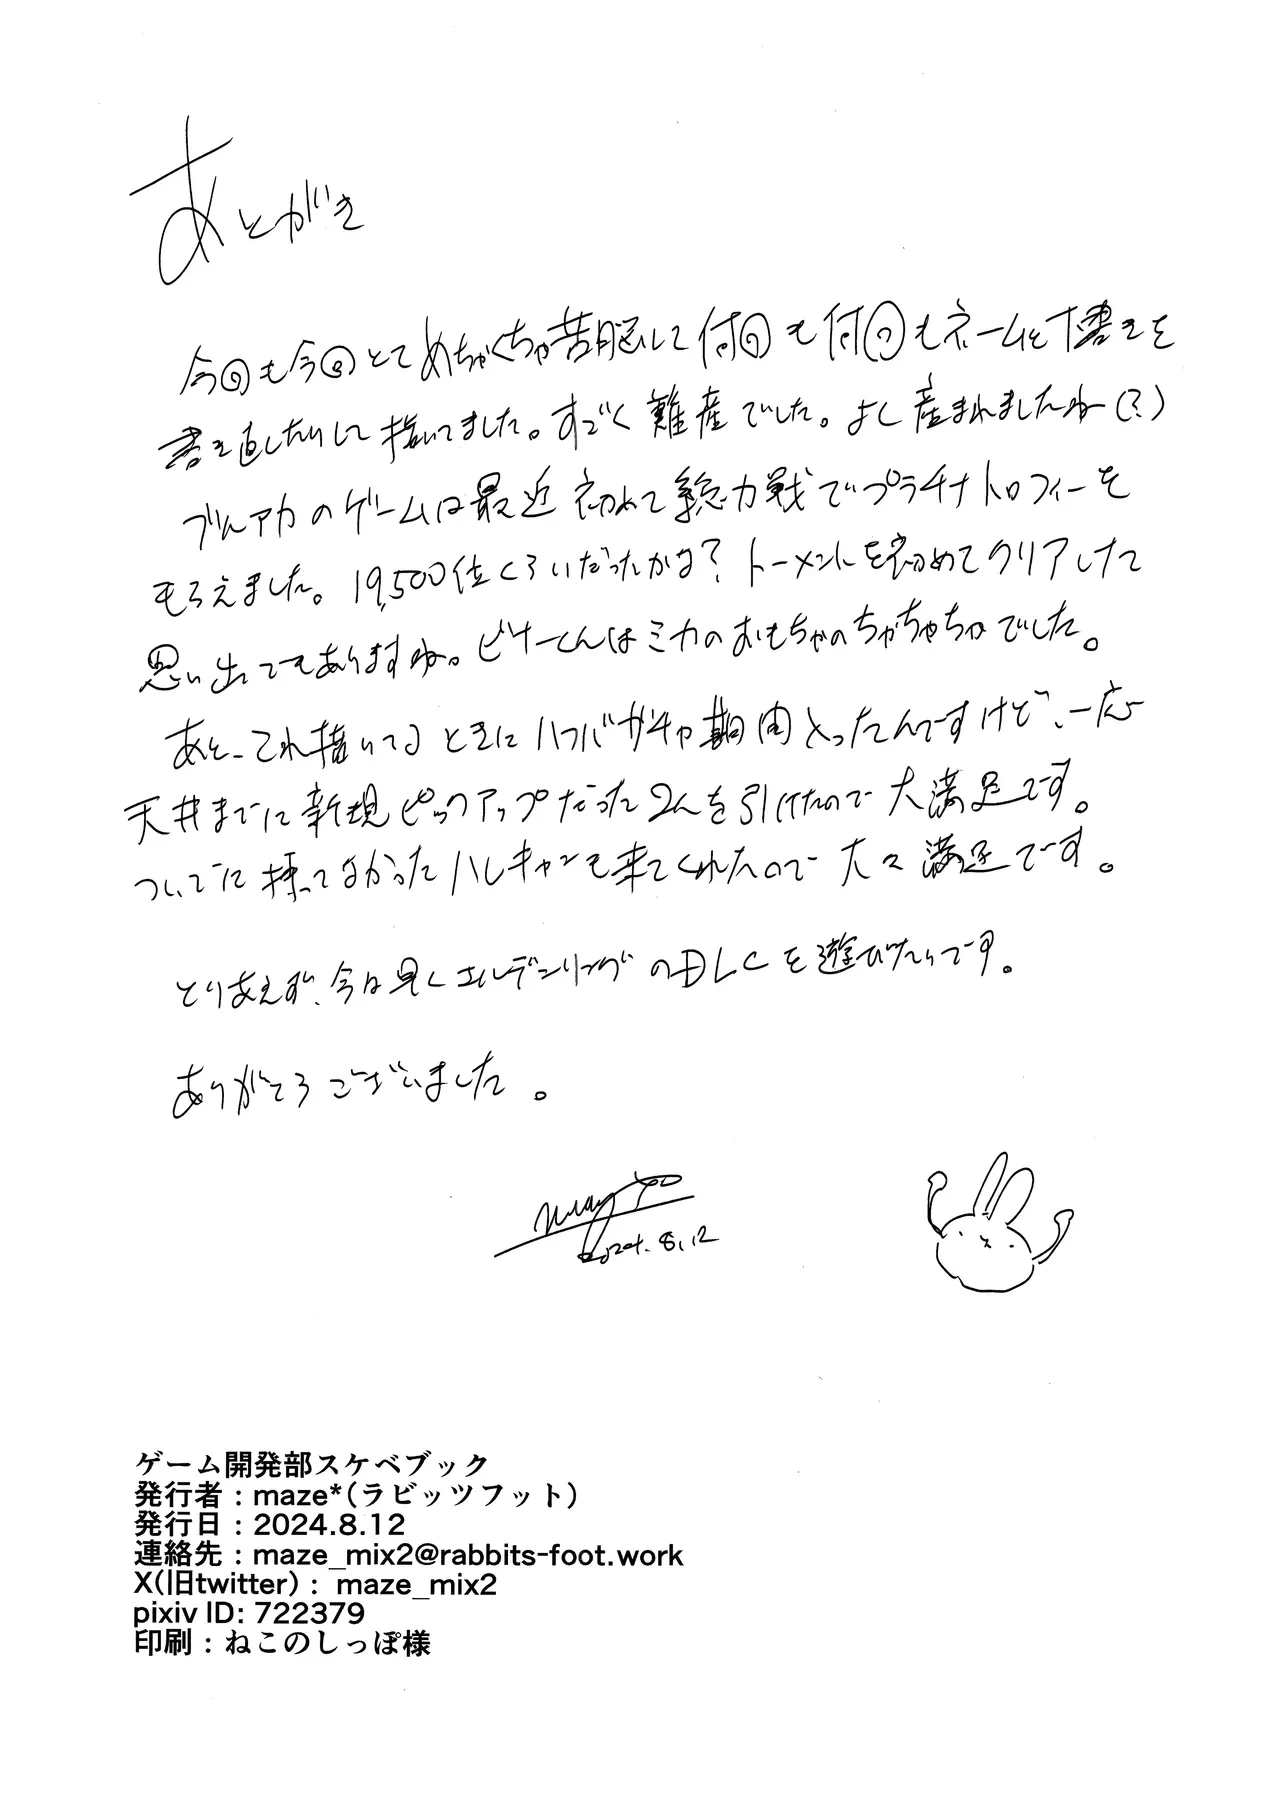 あとがき
今回も今回とてめちゃくちゃ苦悩して何回も何回もネームと下書きを
書き直したりして描いてました。すごく難産でした。よし産まれましたね(?)
ブルアカのゲームは最近初めて総力戦でプラチナトロフィーを
もらえました。19,500位くらいだったかな?トーメントを初めてクリアしたて
思い出でもありますね。ビナーくんはミカのおもちゃのちゃちゃちゃでした。
あと、これ描いてるときにハフバガチャ期間入ったんですけど、一応
天井までに新規ピックアップだった2人を引けたので大満足です。
ついでに持ってなかったハレキャンも来てくれたので大々満足です。
とりあえず、今は早くエルデンリングのDLCを遊びたいです。
ありがとうございました。
2024.8.12
ゲーム開発部スケベブック
発行者：maze*(ラビッツフット)
発行日：2024.8.12
連絡先：maze_mix2@rabbits-foot.work
X(旧twitter)： maze_mix2
pixiv ID: 722379
印刷：ねこのしっぽ様